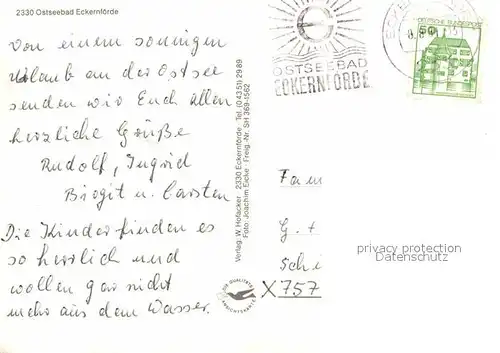 2330 Ostseebad Eckernförde
Von einem sonnigen
Urlaub an der Ostsee
senden wir Euch allen
herzliche Grüße
Rudolf, Ingrid
Birgit u. Carsten
Die Kinder finden es
so herrlich und
wollen gar nicht
mehr aus dem Wasser.
Verlag: W. Hofacker 2330 Eckernförde Tel. (04351) 2989
Foto: Joachim Eicke Freig.-Nr. SH 369-1562
OSTSEEBAD
ECKERNFÖRDE
DEUTSCHE BUNDESPOST
Fam
G. +
Schi
X757
privacy protection
Datenschutz
DIE QUALITÄTS
ANSICHTSKARTE